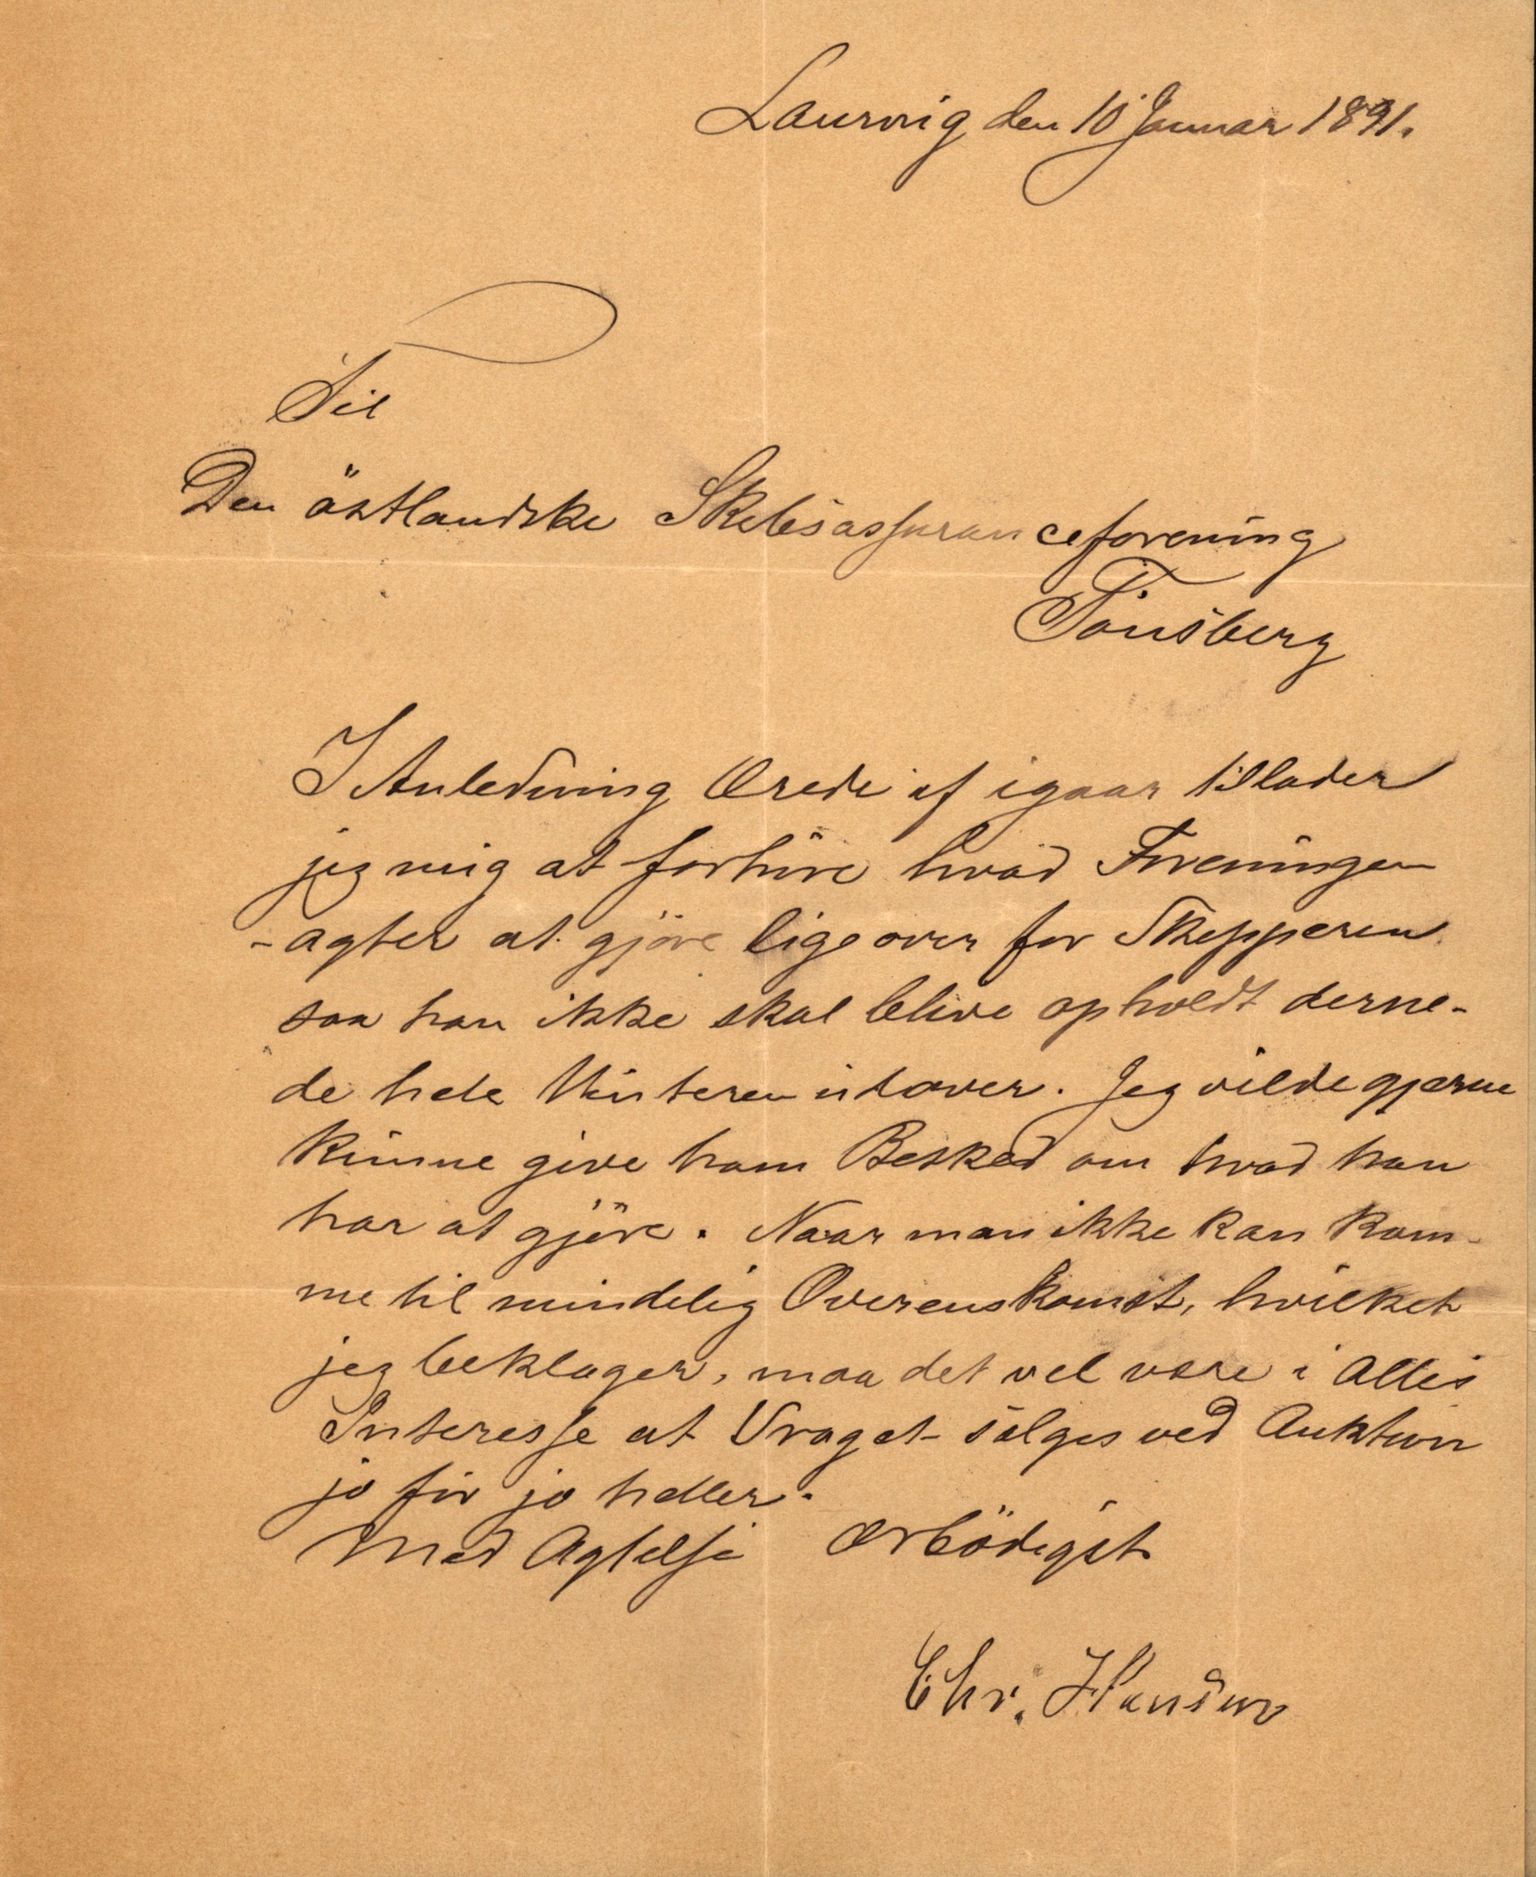 Laurvig den 10 Januar 1891.
Til
Den östlandske Skibsassuranceforening
Tönsberg
I Anledning Ærede af igaar tillader
jeg mig at forhöre hvad Foreningen
- agter at gjöre ligeover for Skipperen
saa han ikke skal blive opholdt derne-
de hele Vinteren udover. Jeg vilde gjerne
kunne give ham Besked om hvad han
har at gjöre. Naar man ikke kan kom-
me til mindelig Overenskomst, hvilket
jeg beklager, maa det vel være i Alles
Interesse at Vraget sælges ved Auktion
jo för jo heller.
Med Agtelse ærbödigst
Chr. Hansen